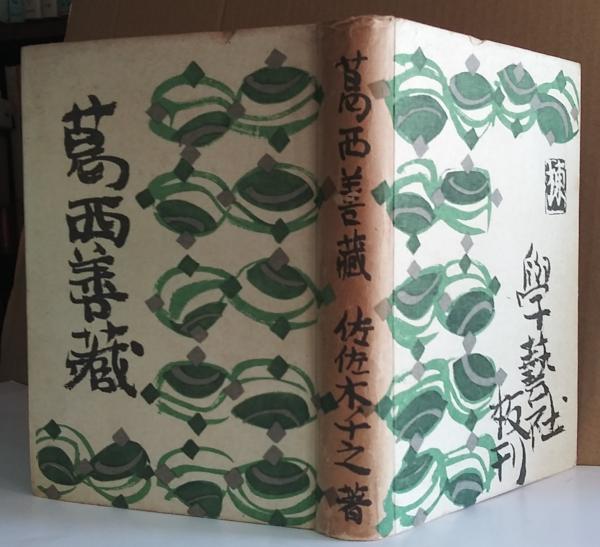 葛西善藏
葛西善藏 佐佐木千之 著
學藝社
板刊